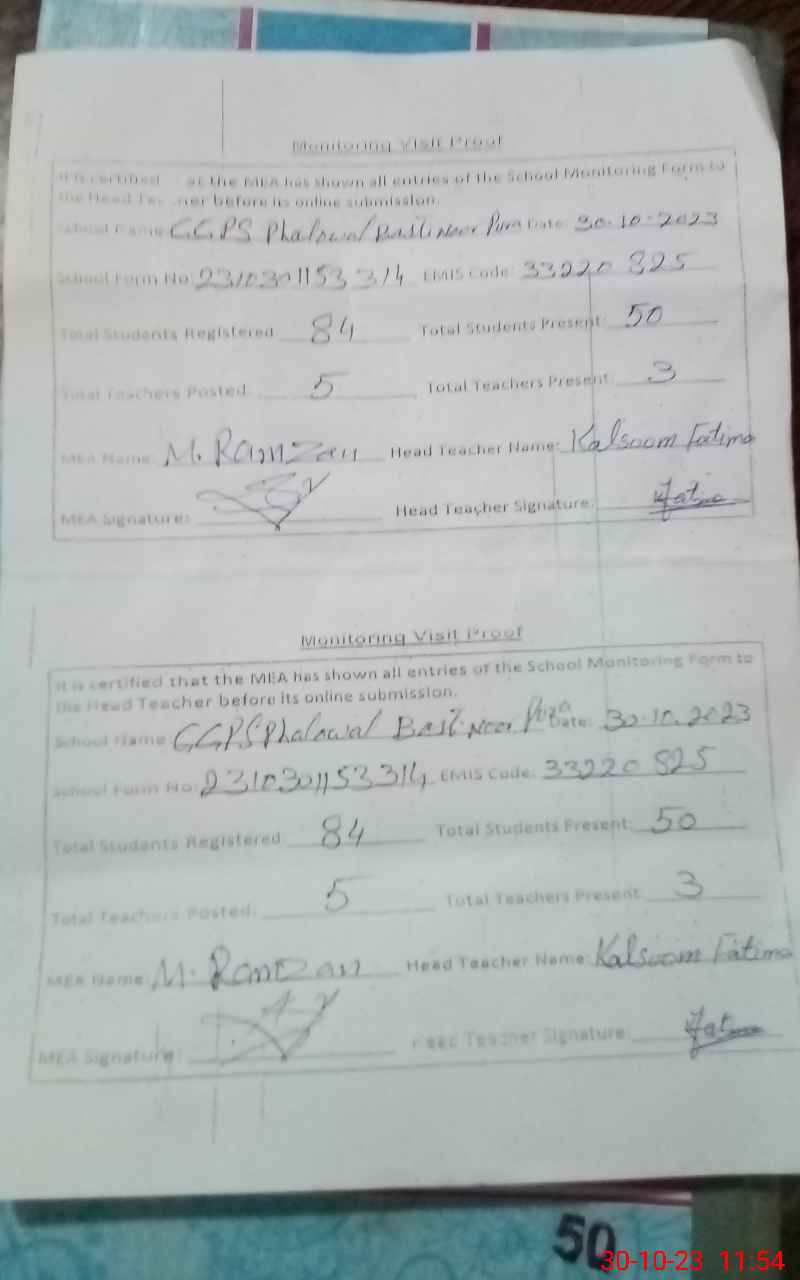 Monitoring Visit Proof
It is certified at the MEA has shown all entries of the School Monitoring Form to
the Head Teacher before its online submission.
School Name GGPS Phalowal Basti Noor Pura Date: 30-10-2023
School Form No: 2310301153314 EMIS Code: 33220825
Total Students Registered 84 Total Students Present: 50
Total Teachers Posted: 5 Total Teachers Present: 3
MEA Name: M. Ramzan Head Teacher Name: Kalsoom Fatima
MEA Signature: Head Teacher Signature: Fatima
Monitoring Visit Proof
It is certified that the MEA has shown all entries of the School Monitoring Form to
the Head Teacher before its online submission.
School Name GGPS Phalowal Basti Noor Pura Date: 30.10.2023
School Form No: 2310301153314 EMIS Code: 33220825
Total Students Registered 84 Total Students Present: 50
Total Teachers Posted: 5 Total Teachers Present: 3
MEA Name M. Ramzan Head Teacher Name: Kalsoom Fatima
MEA Signature: Head Teacher Signature: Fatima
50
30-10-23 11:54